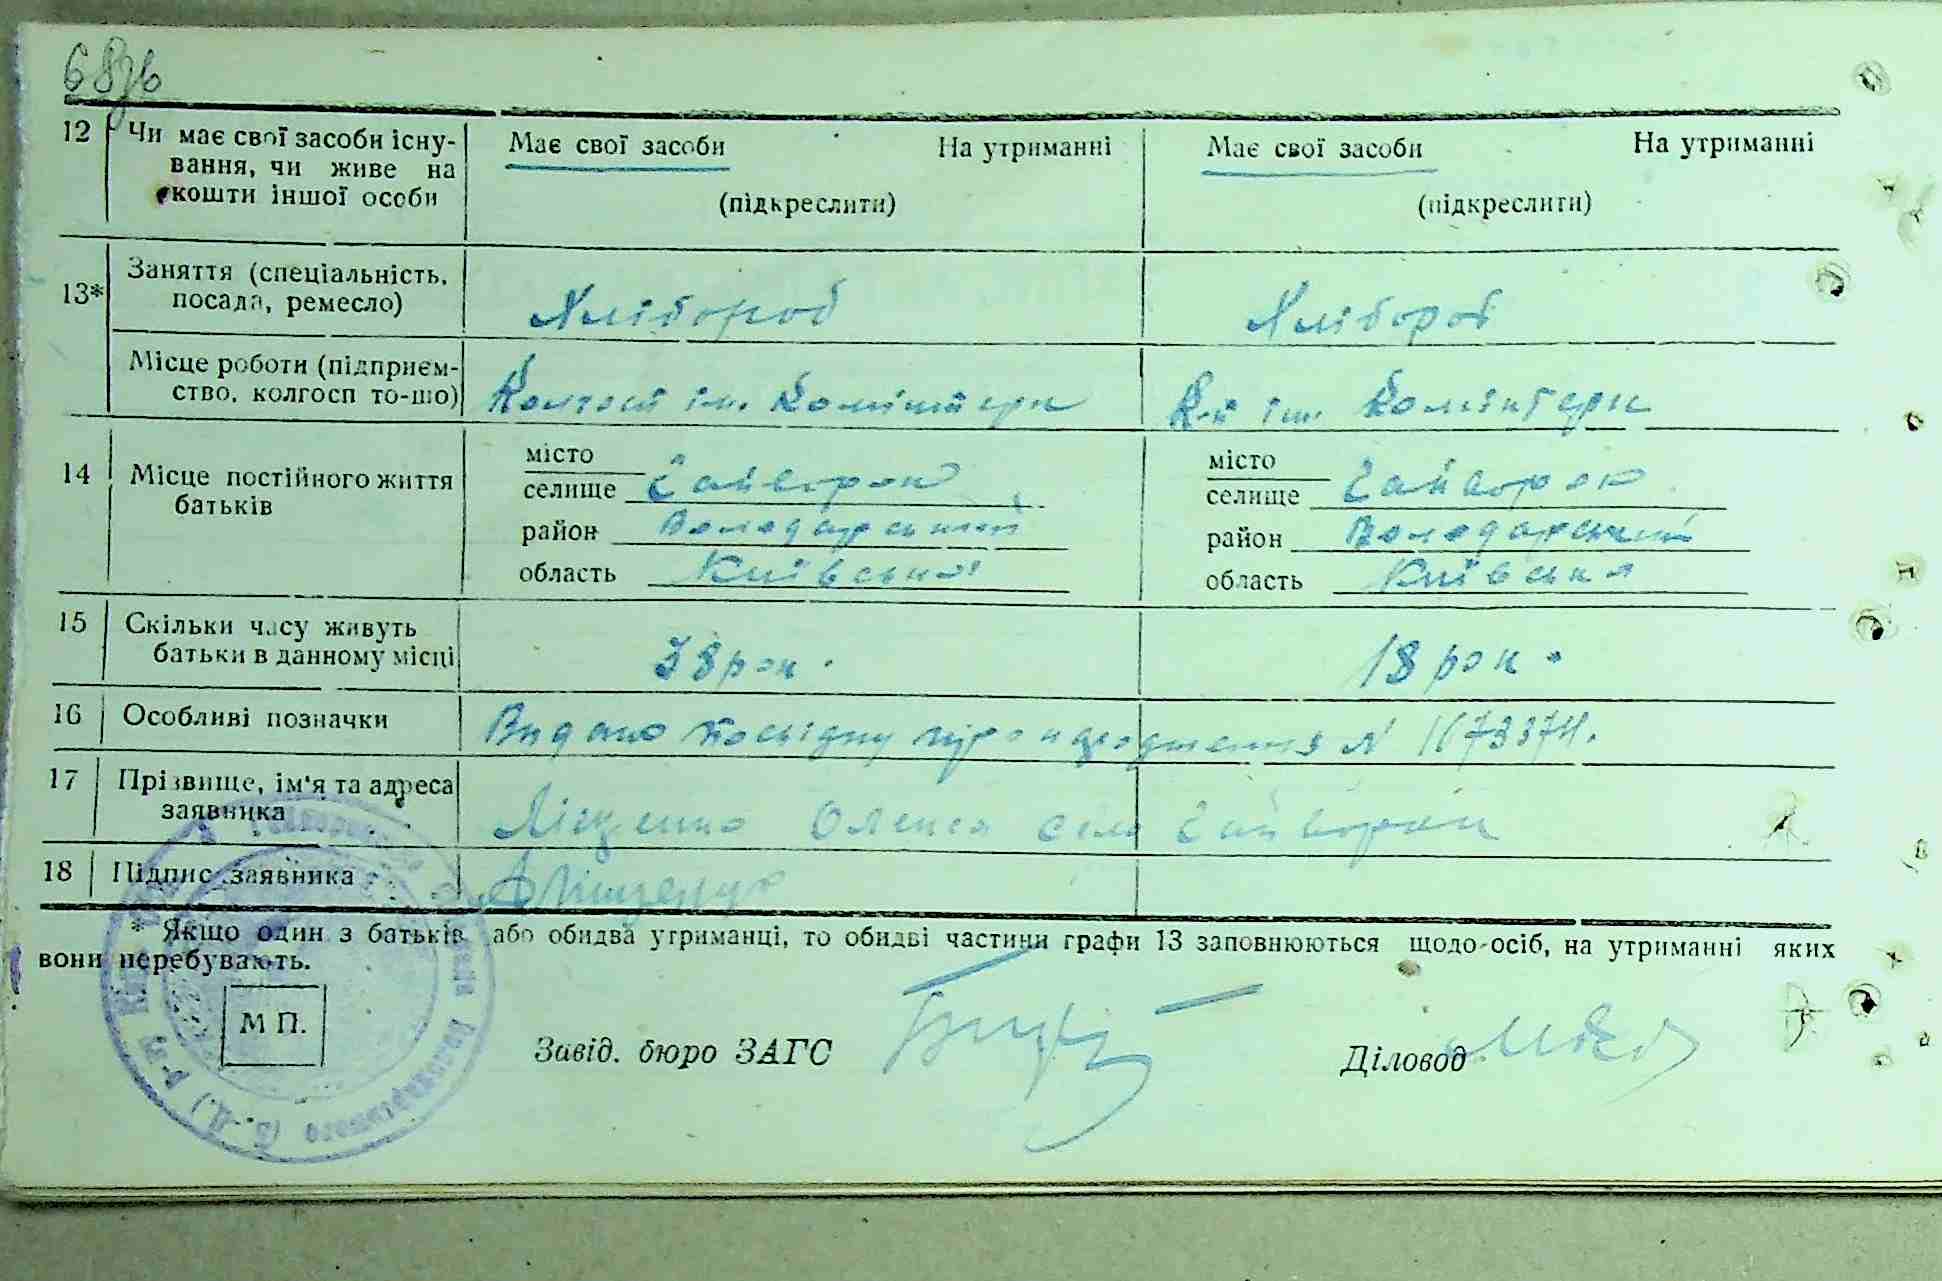 68зв
12 Чи має свої засоби існу- Має свої засоби На утриманні Має свої засоби На утриманні
вання, чи живе на
кошти іншої особи (підкреслити) (підкреслити)
13* Заняття (спеціальність, посада, ремесло) Хлібороб Хлібороб
Місце роботи (підприєм- Колгосп ім. Комінтерн К-п ім. Комінтерн
ство, колгосп то-що)
14 Місце постійного життя батьків
місто місто
селище Гайворон селище Гайворон
район Володарський район Володарський
область Київська область Київська
15 Скільки часу живуть
батьки в данному місці 38 рок. 18 рок.
16 Особливі позначки Видано посвідку про народження № 1673374.
17 Прізвище, ім'я та адреса
заявника Ліщенко Олекса село Гайворон
18 Підпис заявника Ліщенко
* Якщо один з батьків або обидва утриманці, то обидві частини графи 13 заповнюються щодо осіб, на утриманні яких
вони перебувають.
М П.
Завід. бюро ЗАГС Діловод